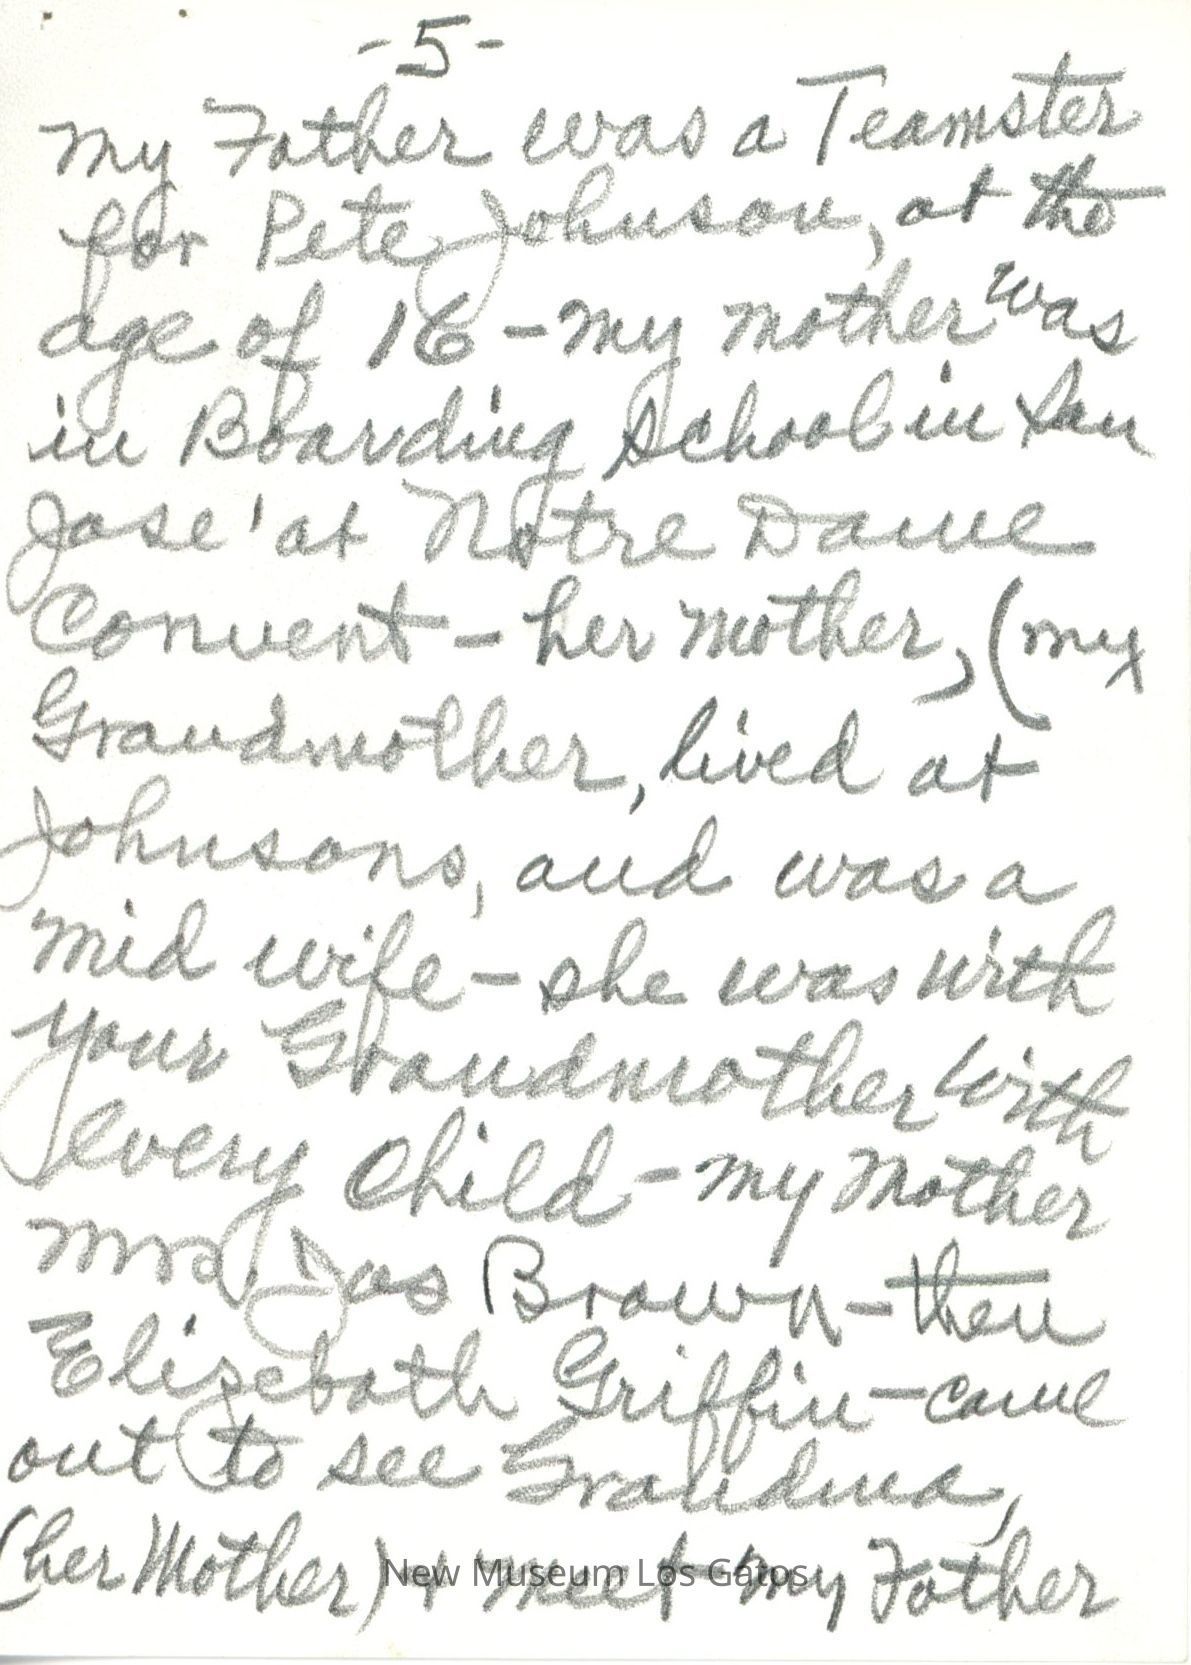 -5-
My Father was a Teamster
for Pete Johnson, at the
age of 16 - my mother was
in Boarding School in San
Jose' at Notre Dame
Convent - her mother, (my
Grandmother, lived at
Johnsons, and was a
mid wife - she was with
your Grandmother with
every child - my Mother
Mrs. Jas Brown - then
Elizebath Griffin - came
out to see Grandma,
(her Mother) & meet my Father
New Museum Los Gatos